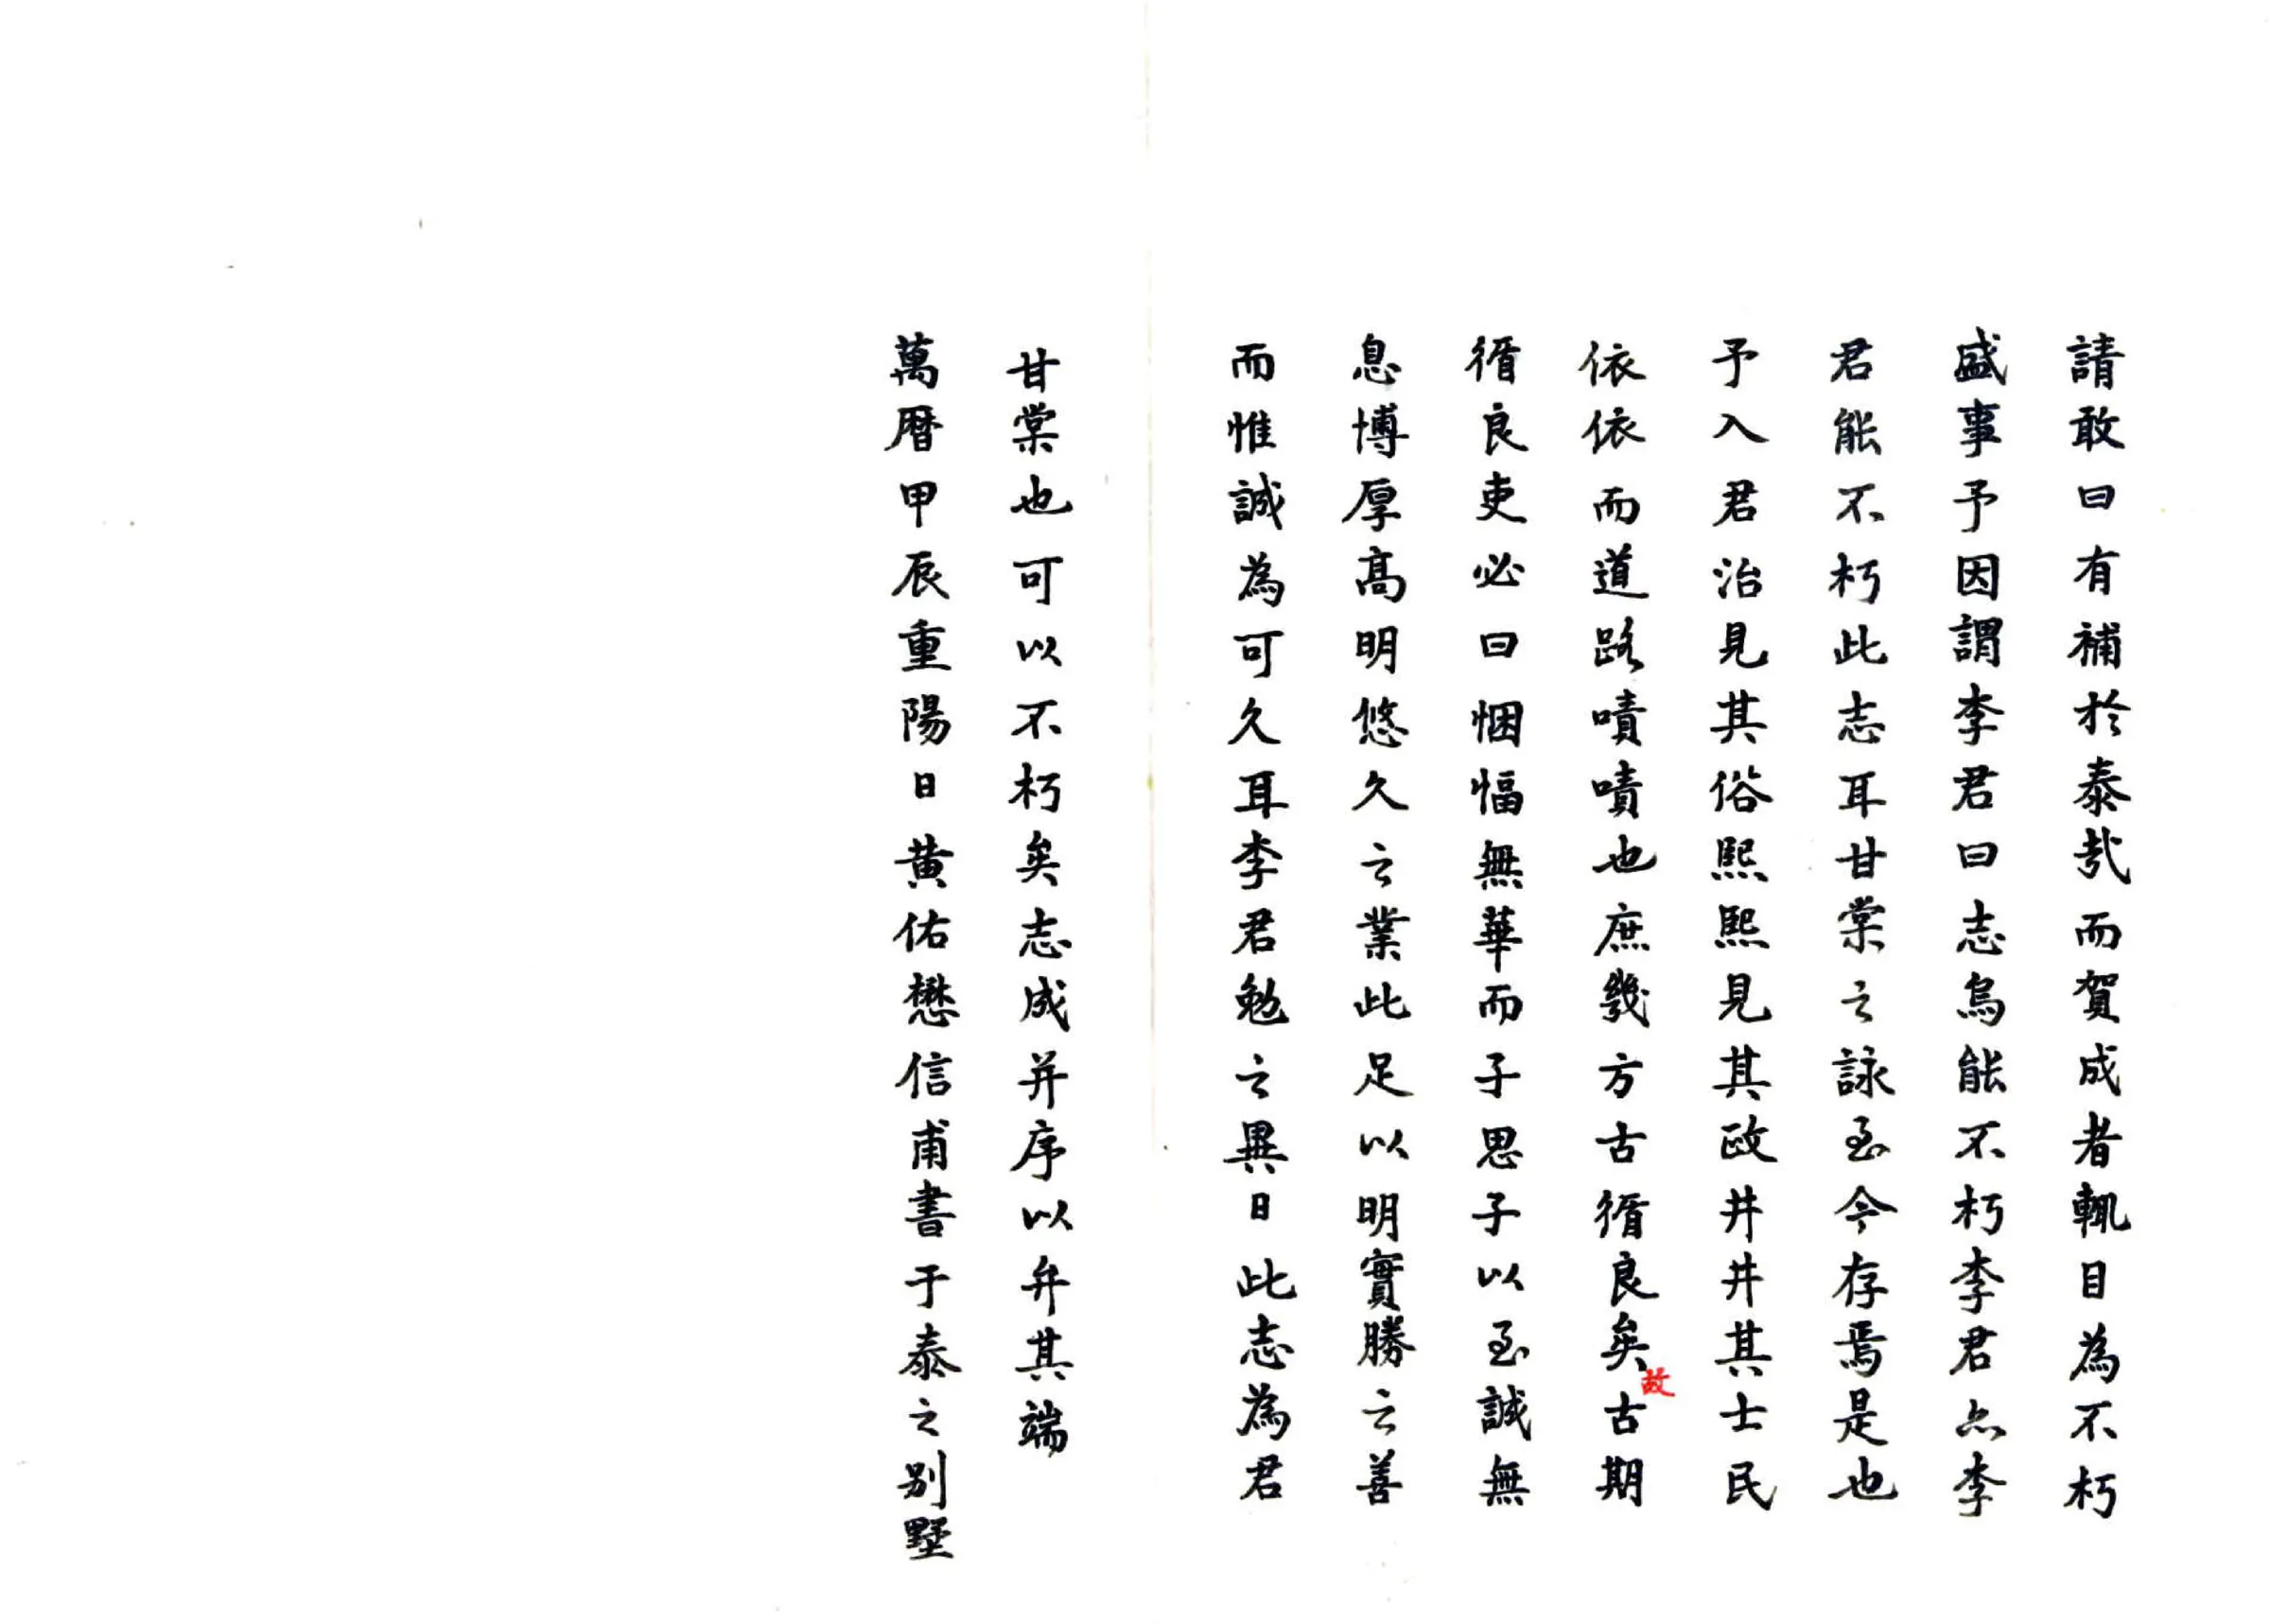 請敢曰有補於泰哉而賀成者輒目為不朽
盛事予因謂李君曰志烏能不朽李君亦李
君能不朽此志耳甘棠之詠至今存焉是也
予入君治見其俗熙熙見其政井井其士民
依依而道路嘖嘖也庶幾方古循良矣故古期
循良吏必曰悃愊無華而子思子以至誠無
息博厚高明悠久之業此足以明實勝之善
而惟誠為可久耳李君勉之異日此志為君
甘棠也可以不朽矣志成并序以弁其端
萬曆甲辰重陽日黄佑懋信甫書于泰之別墅